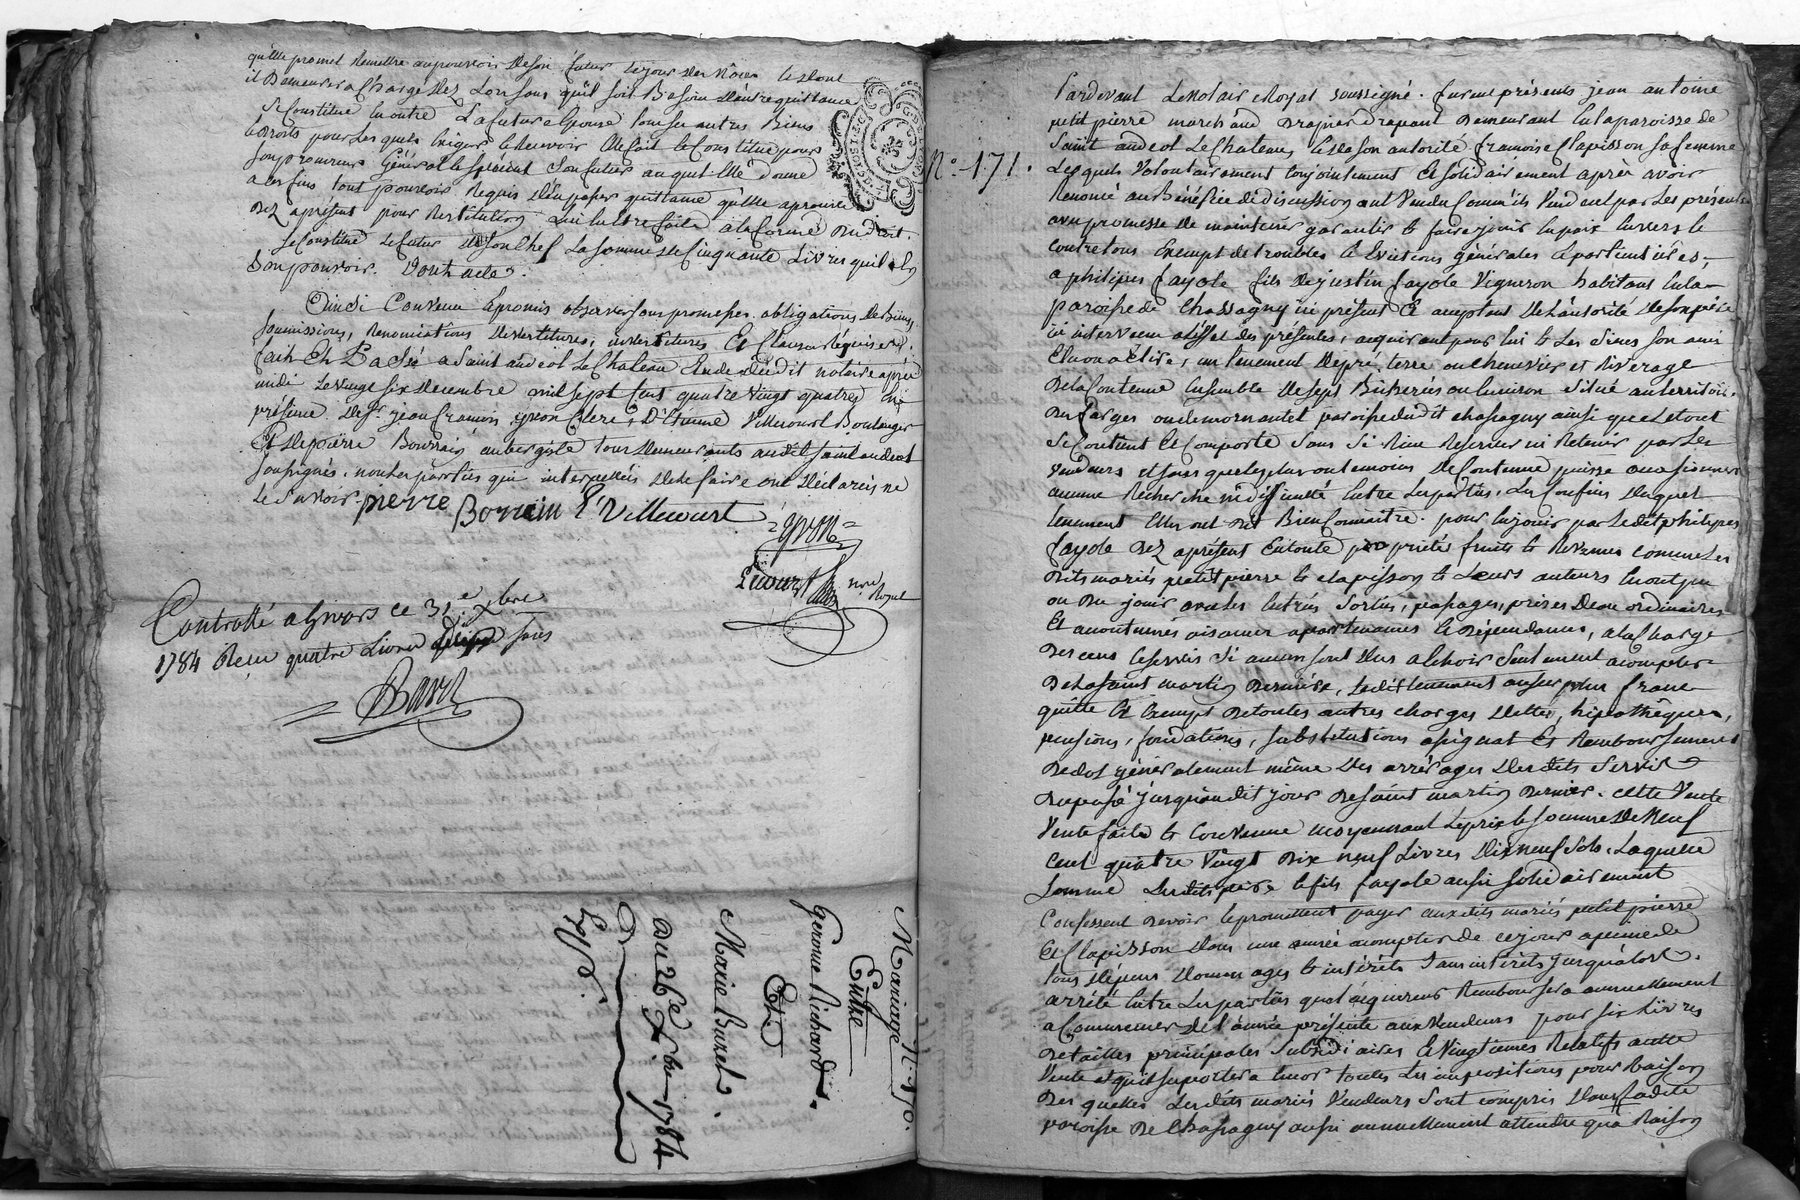 qu'elle promet remettre au pouvoir de son futur le jour des nôces
il demeurera chargé dez lors sans qu'il soit besoin d'autre quittance
se constitue en outre la future épouse tous ses autres biens
et droits pour lesquels exiger et recevoir elle fait et constitue pour
son procureur général et spécial son futur auquel elle donne
a ces fins tout pouvoir requis d'en passer quittance qu'elle aprouve
dez aprésent pour restitution lui en être faite a la forme du droit.
se constitue le futur de son chef la somme de cinquante livres qu'il a en
son pouvoir. Dont acte.
Ainsi convenu et promis observer sous promesses, obligations de biens,
soumissions, renonciations, devestitures, investitures et clauses requises.
fait et passé a Saint andeol le chateau Etude dudit notaire après
midi le vingt six decembre mil sept cent quatre vingt quatre en
présence de Sr jean françois yvon clerc, d'Etienne Villecourt Boulanger
Et de pierre Bourrain aubergiste tous demeurants audit saint andeol
soussignés. non les parties qui interpellées de le faire ont déclaré ne
le savoir.
pierre Bourrein E Villecourt
= yvon =
nore Royal
Controllé a Givors ce 31e xbre
1784 Reçu quatre Livres sous
N. 170.
Mariage
Entre
Gerome Richard
Et
Marie Buzet.
du 26e Xbre 1784
Expé.
N.° 171.
Pardevant Le Notaire Royal soussigné. furent présents jean antoine
petit pierre marchand Drapier drapant demeurant en la paroisse de
Saint andeol Le Chateau, et de son autorité françoise Clapisson sa femme
Lesquels volontairement conjointement et solidairement après avoir
Renoncé au Bénéfice de discussion ont vendu comm'ils vendent par les présentes
avec promesse de maintenir garantir et faire jouir en paix envers et
contre tous exempt de troubles et evictions générales et particulières,
a philipes fayole fils de justin fayole Vigneron habitants en la
paroisse de Chassagny ici présent et acceptant de l'autorité de son père
ici intervenu a l'effet des présentes, acquirant pour lui et les siens son ami
Elu ou a Elire, un tenement de pré, terre ou chenevier et riverage
de la Contenue ensemble de sept Bicherées ou environ situé au territoire
du farges ou de mornantet paroisse dudit chassagny ainsi que le tout
se contient et comporte sans si rien reserver ni retenir par les
vendeurs et sans que le plus ou le moins de contenue puisse occasionner
aucune recherche ni difficulté entre les parties. Les Confins duquel
tenement elles ont dit Bien connaitre. pour en jouir par ledit philipes
fayole dez aprésent en toute propriété fruits et revenus comme les
dits mariés petit pierre et clapisson et leurs auteurs en ont joui
ou du jouir avec les entrées sorties, passages, prises d'eau ordinaires
Et accoutumés aisances apartenances et dépendances, a la charge
des cens et servis si aucun sont dus a échoir seulement a compter
de la saint martin derniere, ledit tenement au surplus franc
quitte et exempt de toutes autres charges dettes, hipothêques,
pensions, fondations, substitutions assignat et remboursement
de dot généralement même des arrérages desdits servis
du passé jusqu'audit jour de saint martin dernier. cette Vente
Vente faite et convenue moyennant le prix et somme de Neuf
Cent quatre vingt dix neuf Livres dix neuf sols. Laquelle
somme lesdits père et fils fayole aussi solidairement
Confessent devoir et promettent payer auxdits mariés petit pierre
Et Clapisson dans une année a compter de ce jour a peine de
tous dépens dommages et intérêts sans intérêts jusqu'alors.
arrêté entre les parties que l'acquereur remboursera annuellement
a commencer de l'année présente aux vendeurs pour six livres
de tailles principales subsidiaires et vingtiemes relatifs a cette
Vente et qu'il suportera encor toutes les impositions pour raison
des quelles lesdits mariés vendeurs sont compris dans ladite
paroisse de Chassagny aussi annuellement attendu qu'a raison